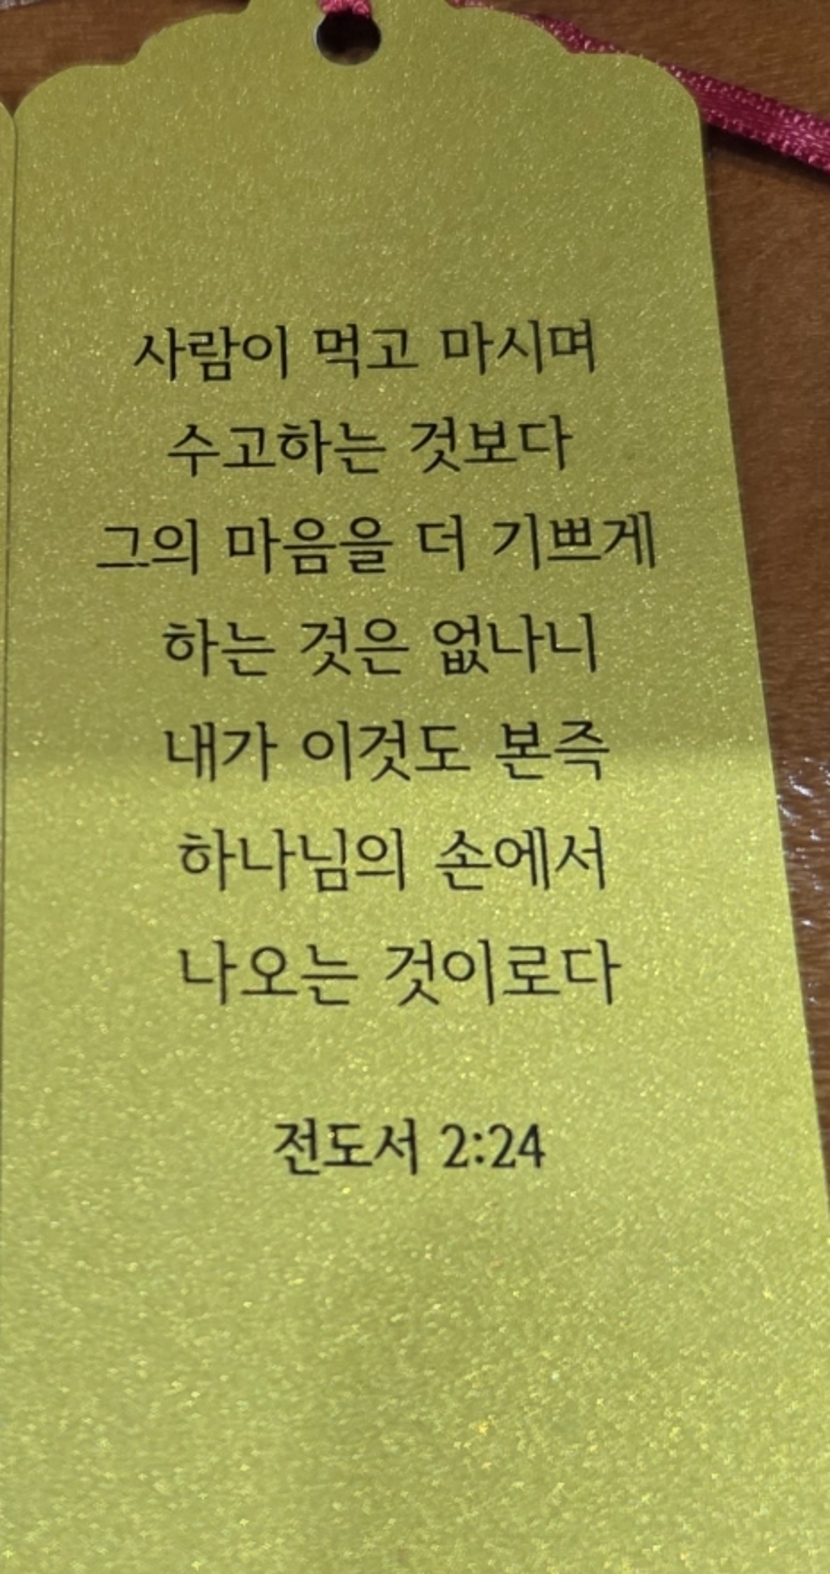 사람이 먹고 마시며
수고하는 것보다
그의 마음을 더 기쁘게
하는 것은 없나니
내가 이것도 본즉
하나님의 손에서
나오는 것이로다
전도서 2:24